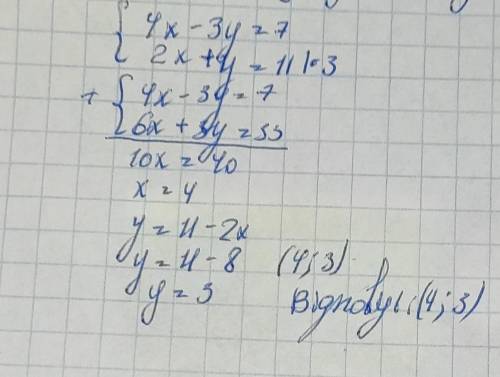 { 4x - 3y = 7
2x + y = 11 |·3
+ { 4x - 3y = 7
6x + 3y = 33
10x = 40
x = 4
y = 11 - 2x
y = 11 - 8 (4; 3)
y = 3 Відповідь: (4; 3)